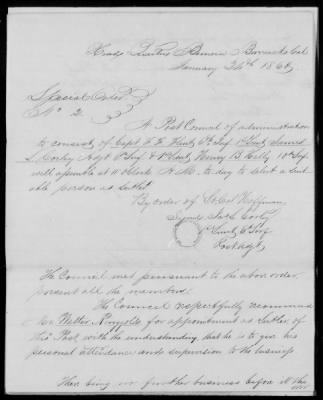 Head Quarters Benicia Barracks Cal
January 24th 186
Special Order
No 2
A Post Council of administration
to consist of Capt F. F. Flint 6th Inf 1st Lieut James
L Corley Adjt 6th Inf & 1st Lieut Henry B. Kelly 10th Inf
will assemble at 11 o'clock A.M. to day to elect a suit
able person as Sutler
By order of Lt Col Hoffman
Signed Jas L Corley
1st Lieut 6th Inf
Post Adjt
The Council met pursuant to the above order,
present all the members
The Council respectfully recommend
Mr Walter Reynolds for appointment as Sutler of
this Post, with the understanding that he is to give his
personal attendance and supervision to the business
There being no further business before it the